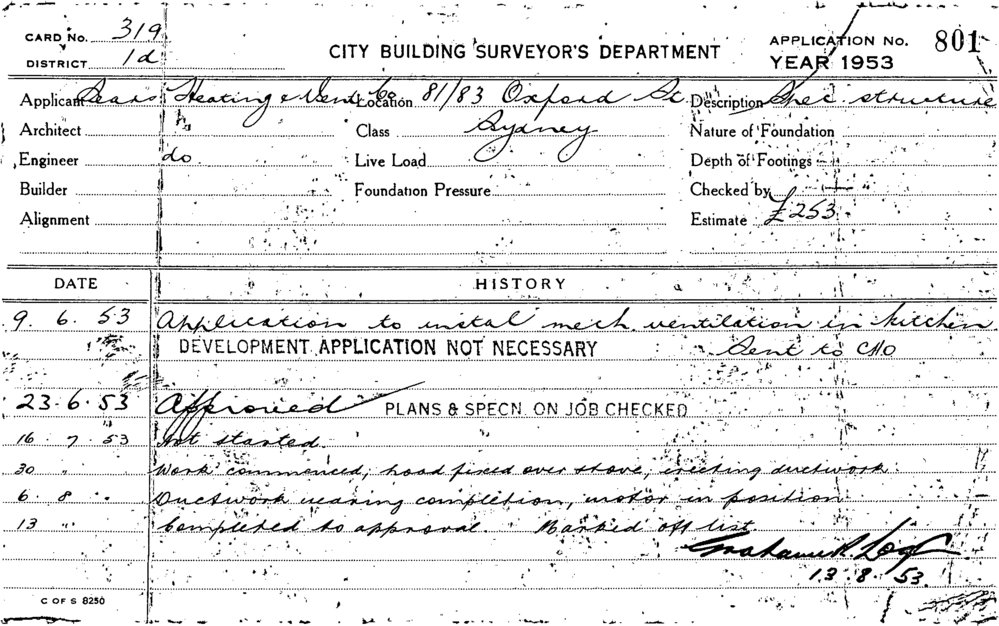 CARD NO. 319
DISTRICT 1d
CITY BUILDING SURVEYOR'S DEPARTMENT
APPLICATION NO. 801
YEAR 1953
Applicant Sears Heating & Vent Co Location 81/83 Oxford St. Description Spec. structure
Architect " Class Sydney Nature of Foundation
Engineer do. Live Load Depth of Footings
Builder Foundation Pressure Checked by
Alignment Estimate £253.
DATE HISTORY
9. 6. 53 Application to instal mech. ventilation in kitchen
DEVELOPMENT APPLICATION NOT NECESSARY Sent to CHO
23. 6. 53 Approved PLANS & SPECN. ON JOB CHECKED
16 7 53 Not started.
30 " Work commenced, hood fixed over stove, erecting ductwork.
6. 8 " Ductwork nearing completion, motor in position
13 " Completed to approval. Marked off list.
13. 8. 53.
C OF S 8250